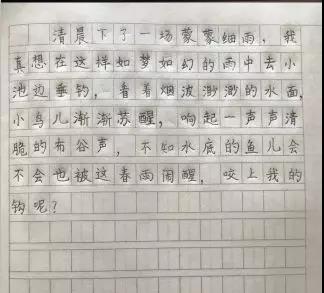 清晨下了一场蒙蒙细雨，我
真想在这样如梦如幻的雨中去小
池边垂钓，看着烟波渺渺的水面，
小鸟儿渐渐苏醒，响起一声声清
脆的布谷声，不知水底的鱼儿会
不会也被这春雨闹醒，咬上我的
钩呢？